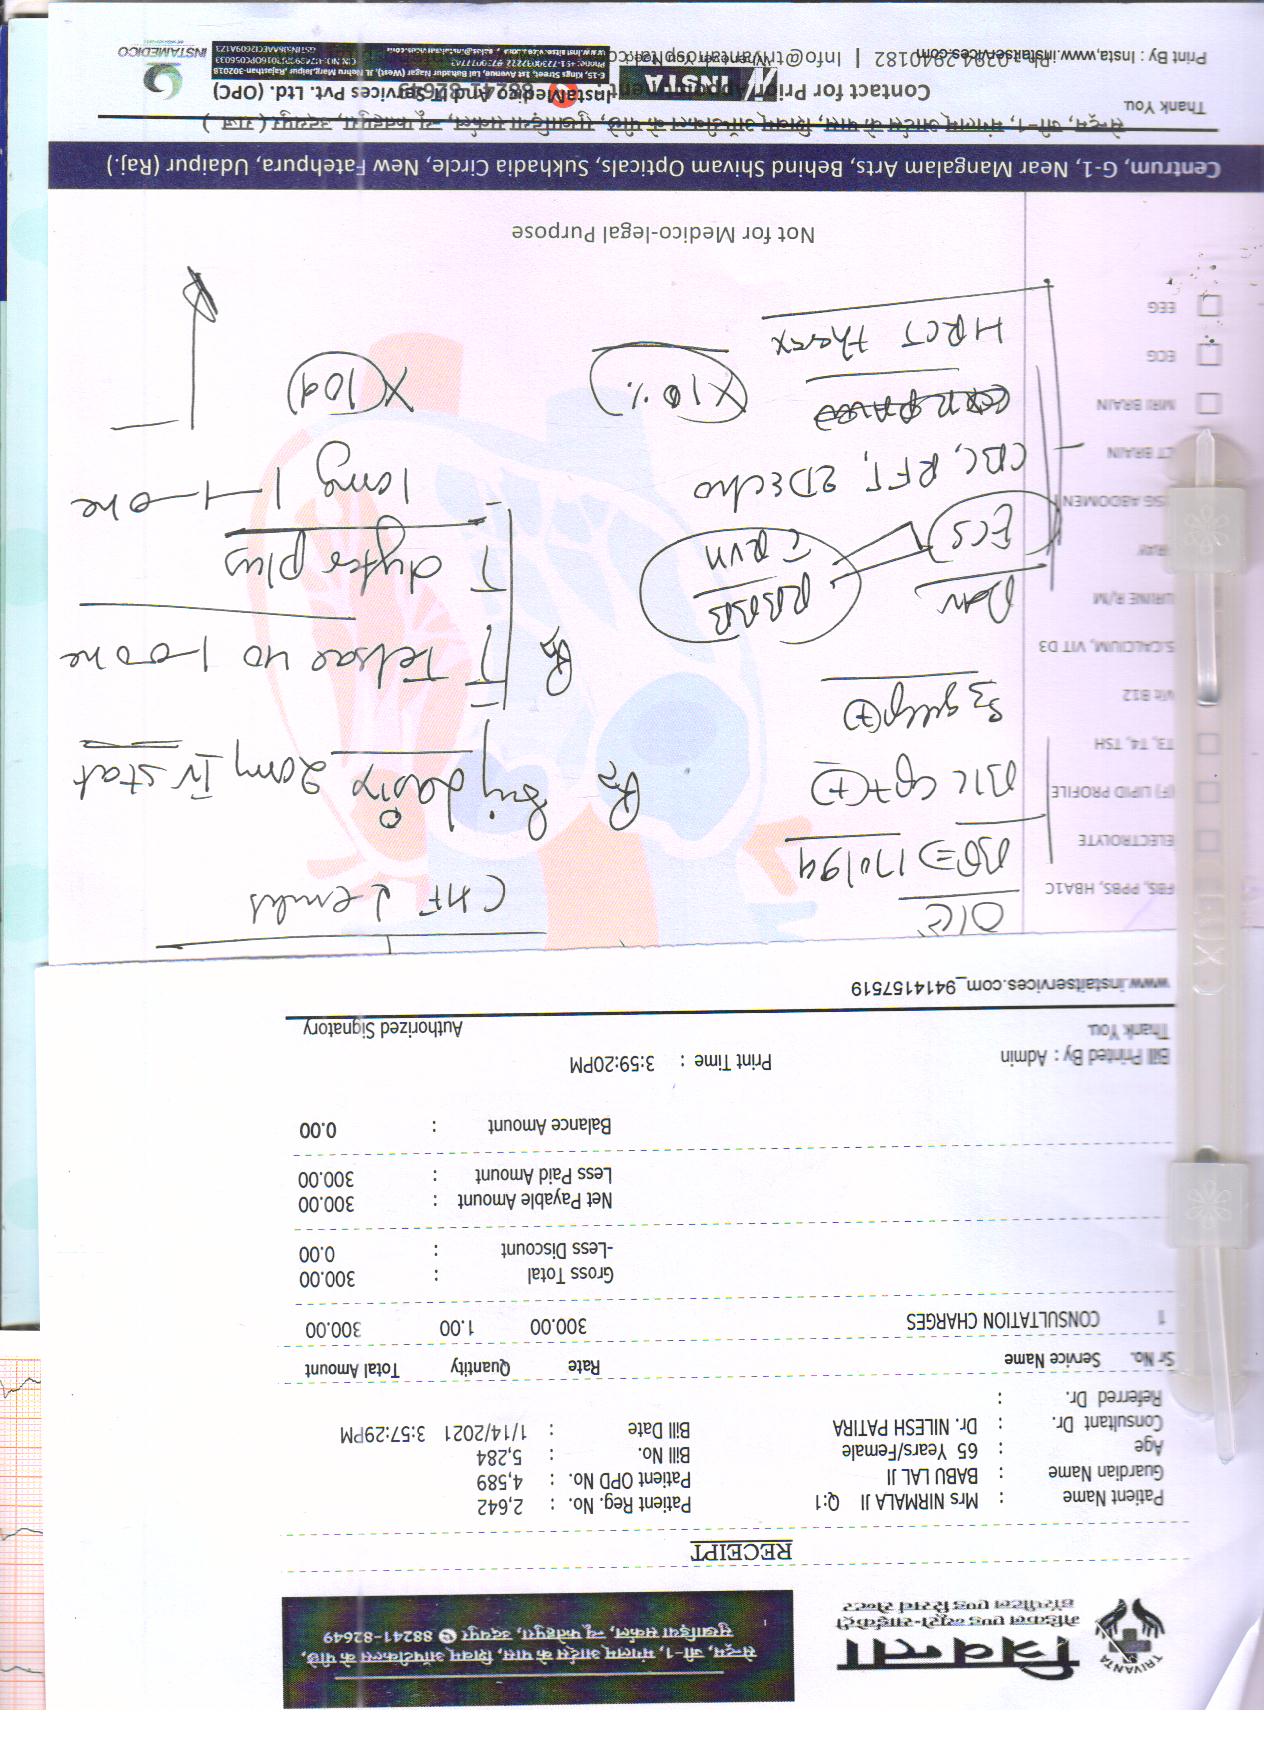 TRIVANTA
त्रिवन्ता
मेडिकल एण्ड न्यूरो-साईकेट्री
हॉस्पीटल एण्ड रिसर्च सेन्टर
सेन्ट्रम, जी-1, मंगलम् आर्टस के पास, शिवम् ऑप्टीकल्स के पीछे,
सुखाड़िया सर्कल, न्यू फतहपुरा, उदयपुर 88241-82649
RECEIPT
Patient Name : Mrs NIRMALA JI Q:1 Patient Reg. No. : 2,642
Guardian Name : BABU LAL JI Patient OPD No. : 4,589
Age : 65 Years/Female Bill No. : 5,284
Consultant Dr. : Dr. NILESH PATIRA Bill Date : 1/14/2021 3:57:29PM
Referred Dr. :
Sr No. Service Name Rate Quantity Total Amount
1 CONSULTATION CHARGES 300.00 1.00 300.00
Gross Total : 300.00
-Less Discount : 0.00
Net Payable Amount : 300.00
Less Paid Amount : 300.00
Balance Amount : 0.00
Bill Printed By : Admin Print Time : 3:59:20PM
Thank You. Authorized Signatory
www.instaitservices.com_9414157519
FBS, PPBS, HBA1C
ELECTROLYTE
(F) LIPID PROFILE
T3, T4, TSH
Vit B12
S.CALCIUM, VIT D3
URINE R/M
RAY
SG ABDOMEN
CT BRAIN
MRI BRAIN
ECG
EEG
O/E
BP 170/94
B/L cpt (+)
S3 gallop (+)
Adv
ECG
RBBB
c RVH
CBC, RFT, 2D Echo
HRCT thorax
X 10%
CHF
Rx Inj Lasix 20mg IV stat
Rx T Telsar 40 1-0 one
T dytor plus
10mg 1-1-one
X 10d
Not for Medico-legal Purpose
Centrum, G-1, Near Mangalam Arts, Behind Shivam Opticals, Sukhadia Circle, New Fatehpura, Udaipur (Raj.)
सेन्ट्रम, जी-1, मंगलम् आर्टस के पास, शिवम् ऑप्टीकल्स के पीछे, सुखाड़िया सर्कल, न्यू फतहपुरा, उदयपुर (राज.)
Thank You.
Contact for Prior Appointment : 88241-82649
INSTA
Whenever You Need
InstaMedico And IT Services Pvt. Ltd. (OPC)
E-15, Kings Street, 1st Avenue, Lal Bahadur Nagar (West), JL Nehru Marg, Jaipur Rajasthan-302018
Print By : Insta, www.instaitservices.com
Ph.: 0294-2940182 | Info@trivantahospital.co
INSTAMEDICO